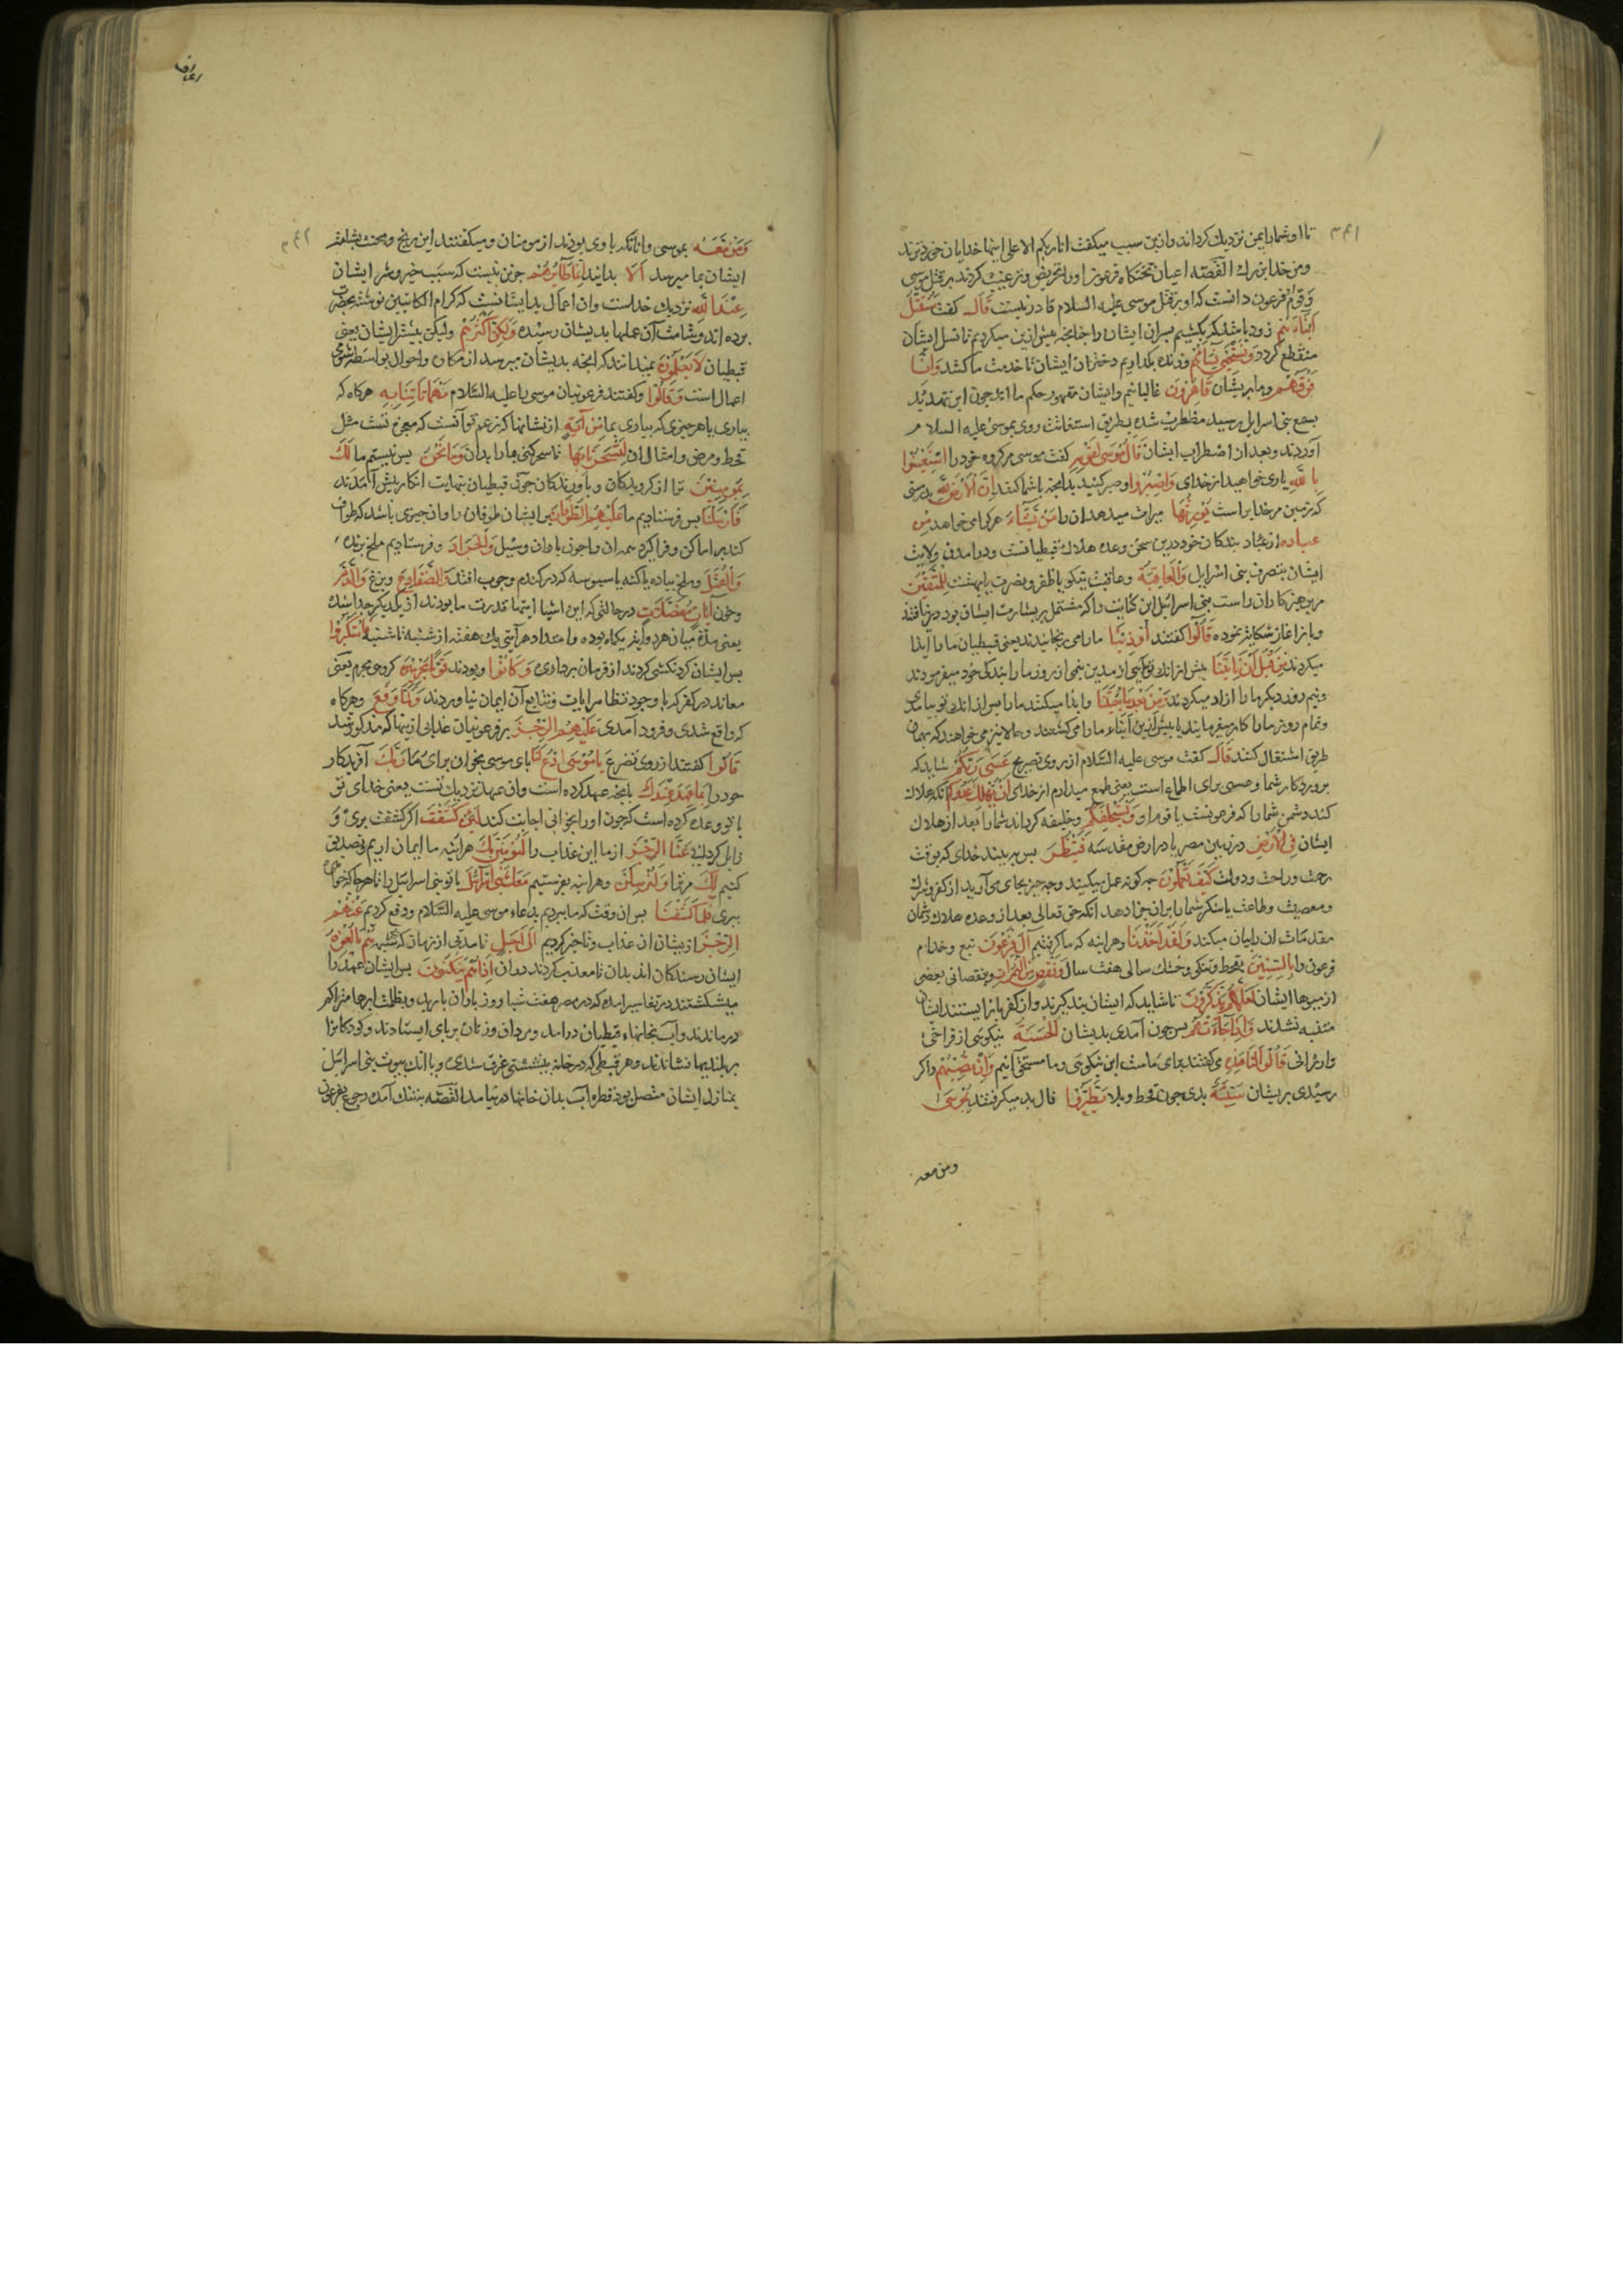 ۳۴۱
تا او شما را بمن نزدیک کرداند و ازین سبب میکفت انا ربکم الاعلی اینها خدایان خردترند
و من خدای بزرک القصه اعیان تختکاه فرعون او را تحریض و ترغیب کردند بر قتل موسی
و قوم فرعون دانست که او بر قتل موسی علیه السلام قادر نیست قَالَ کفت سَنُقَتِّلُ
اَبْنَاءَهُمْ زود باشد که بکشیم پسران ایشان را جنانجه پیش ازین میکردیم تا نسل ایشان
منقطع کردد وَنَسْتَحْیِی نِسَاءَهُمْ و زنده بکذاریم دختران ایشان تا خدمت ما کنند وَاِنَّا
فَوْقَهُمْ و ما بر ایشان قَاهِرُونَ غالبانیم و ایشان مقهور حکم ما اند جون این تهدید
بسمع بنی اسرایل رسید مضطرب شده بطریق استغاثت روی بموسی علیه السلام
آوردند و بعد از اضطراب ایشان قَالَ مُوسَی لِقَوْمِهِ کفت موسی مر کروه خود را اسْتَعِینُوا
بِاللّٰهِ یاری خواهید از خدای وَاصْبِرُوا و صبر کنید بدانجه با شما کنند اِنَّ الْاَرْضَ لِلّٰهِ بدرستی
که زمین مر خدایراست یُورِثُهَا میراث میدهد ان را مَنْ یَشَاءُ هر کرا می خواهد مِنْ
عِبَادِهِ از عباد بندکان خود درین سخن وعده هلاک قبطیانست و درآمدن ولایت
ایشان بتصرف بنی اسرایل وَالْعَاقِبَةُ و عاقبت نیکو یا ظفر و نصرت یا بهشت لِلْمُتَّقِینَ
مر پرهیزکاران راست بنی اسرائیل این کنایت را که مشتمل بر بشارت ایشان بود درنیافتند
و باز اغاز شکایت نموده قَالُوا کفتند اُوذِینَا ما را می رنجانیدند یعنی قبطیان ما را ایذا
میکردند مِنْ قَبْلِ اَنْ تَأْتِیَنَا پیش از انک تو آئی از مدین نیمی از روز ما را بندکی خود میفرمودند
و نیم روز دیکر ما را ازاد میکردند وَمِنْ بَعْدِ مَا جِئْتَنَا و ایذا میکنند ما را پس از انکه تو بیامدی
و تمام روز ما را کار میفرمایند یا پیش ازین ابناء ما را می کشتند و حالا نیز می خواهند که بهمان
طریق اشتغال کنند قَالَ کفت موسی علیه السلام از روی تصریح عَسَی رَبُّکُمْ شاید که
پروردکار شما و عسی برای اطماع است یعنی طمع میدارم از خدای اَنْ یُهْلِکَ عَدُوَّکُمْ آنکه هلاک
کند دشمن شما را که فرعونست با قوم او وَیَسْتَخْلِفَکُمْ و خلیفه کرداند شما را بعد از هلاک
ایشان فِی الْاَرْضِ در زمین مصر یا در ارض مقدسه فَیَنْظُرَ پس به بیند خدای که بوقت
رحت و راحت و دولت کَیْفَ تَعْمَلُونَ جه کونه عمل میکنید و جه جیز بجای می آورید از کفر و شرک
و معصیت و طاعت یا شکر شما را بران جزا دهد آنکه حق تعالی بعد از وعده هلاک دشمان
مقدمات ان را بیان میکند وَلَقَدْ اَخَذْنَا و هراینه که ما کرفتیم آلَ فِرْعَوْنَ تبع و خدام
فرعون را بِالسِّنِینَ بقحط و تنکی و خشک سالی هفت سال وَنَقْصٍ مِنَ الثَّمَرَاتِ و بنقصانی بعضی
از میوها ایشان لَعَلَّهُمْ یَذَّکَّرُونَ تا شاید که ایشان پند کیرند و از کفر باز ایستند ایشان
متنبه نشدند فَاِذَا جَاءَتْهُمُ پس جون آمدی بدیشان الْحَسَنَةُ نیکوئی از فراخی
و ارزانی قَالُوا لَنَا هَذِهِ می کفتند برای ماست این نیکوئی و ما مستحق آنیم وَاِنْ تُصِبْهُمْ و اکر
رسیدی بریشان سَیِّئَةٌ بدی جون قحط و بلا یَطَّیَّرُوا فال بد میکرفتند بِمُوسَی
ومن معه
اعراف
۳۴۲
وَمَنْ مَعَهُ بموسی و انانکه با وی بودند از مومنان و میکفتند این رنج و محنت بشامت
ایشان بما میرسد اَلَا بدانید اِنَّمَا طَائِرُهُمْ جزین نیست که سبب خیر و شر ایشان
عِنْدَ اللّٰهِ نزدیک خداست و ان اعمال بد ایشانست که کرام الکاتبین نوشته بحضرت
برده اند و شامت آن عملها بدیشان رسیده وَلٰکِنَّ اَکْثَرَهُمْ و لیکن بیشتر ایشان یعنی
قبطیان لَا یَعْلَمُونَ نمیدانند که انجه بدیشان میرسد از مکان و احوال بواسطه شومی
اعمال است وَقَالُوا و کفتند فرعونیان موسی را علیه السلام مَهْمَا تَأْتِنَا بِهِ هرکاه که
بیاری یا هر جیزی که بیاری بما مِنْ آیَةٍ از نشانها که بزعم تو آنست که معجزه تست مثل
قحط و مرض و امثال ان لِتَسْحَرَنَا بِهَا تا سحر کنی ما را بدان فَمَا نَحْنُ پس نیستیم ما لَکَ
بِمُؤْمِنِینَ ترا از کرویدکان و باوردارندکان جون قبطیان بنهایت انکار پیش آمدند
فَاَرْسَلْنَا پس فرستادیم ما عَلَیْهِمُ الطُّوفَانَ بر ایشان طوفان را و ان جیزی باشد که طواف
کند بر اماکن و فرا کیرد همه را ان و اجون باران و سیل وَالْجَرَادَ و فرستادیم ملخ پرنده
وَالْقُمَّلَ و ملخ پیاده یا کنه یا سبوسه که در کندم و حبوب افتد وَالضَّفَادِعَ و بزغ وَالدَّمَ
و خون آیَاتٍ مُفَصَّلَاتٍ در حالتی که این اشیا ایتها قدرت ما بودند از یکدیکر جدا شده
یعنی مدة میان هر دو آیة یکماه بوده و امتداد هر آیتی یک هفته از شنبه تا شنبه فَاسْتَکْبَرُوا
پس ایشان کردنکشی کردند از فرمان برداری وَکَانُوا و بودند قَوْمًا مُجْرِمِینَ کروهی مجرم یعنی
معاند در کفر که با وجود تظاهر ایات و تتابع آن ایمان نیاوردند وَلَمَّا وَقَعَ و هرکاه
که واقع شدی و فرود آمدی عَلَیْهِمُ الرِّجْزُ بر فرعونیان عذابی ازینها که مذکور شد
قَالُوا کفتند از روی تضرع یَا مُوسَی ادْعُ لَنَا ای موسی بخوان برای ما رَبَّکَ آفریدکار
خود را بِمَا عَهِدَ عِنْدَکَ بانجه عهد کرده است و ان عهد نزدیک تست یعنی خدای تو
با تو وعده کرده است که جون او را بخوانی اجابت کند لَئِنْ کَشَفْتَ اکر کشف بری و
زایل کردانی عَنَّا الرِّجْزَ از ما این عذاب را لَنُؤْمِنَنَّ لَکَ هراینه ما ایمان اریم و تصدیق
کنیم لَکَ مر ترا وَلَنُرْسِلَنَّ و هراینه بفرستیم مَعَکَ بَنِی اِسْرَائِیلَ با تو بنی اسرائیل را تا هر جا که خواهی
ببری فَلَمَّا کَشَفْنَا پس ان وقت که ما ببردیم بدعاء موسی علیه السلام و دفع کردیم عَنْهُمُ
الرِّجْزَ از یشان ان عذاب و تاخیر کردیم اِلَی اَجَلٍ تا مدتی از زمان که هُمْ بَالِغُوهُ
ایشان رسندکان اند بدان تا معذب کردند دران اِذَا هُمْ یَنْکُثُونَ پس ایشان عهد را
میشکستند در تفاسیر امده که در مصر هفت شبا و روز باران بارید و بظلمت ابرها متراکم
درماندند و آب بخانهاء قبطیان درامد و مردان و زنان بر پای ایستادند و کودکانرا
بر بلندیها نشاندند و هر قبطی که در خانه بنشستی غرق شدی و با انک بیوت بنی اسرائیل
بمنازل ایشان متصل بود قطره آب بدان خانها در نیامد القصه بتنک آمده رجوع بفرعون